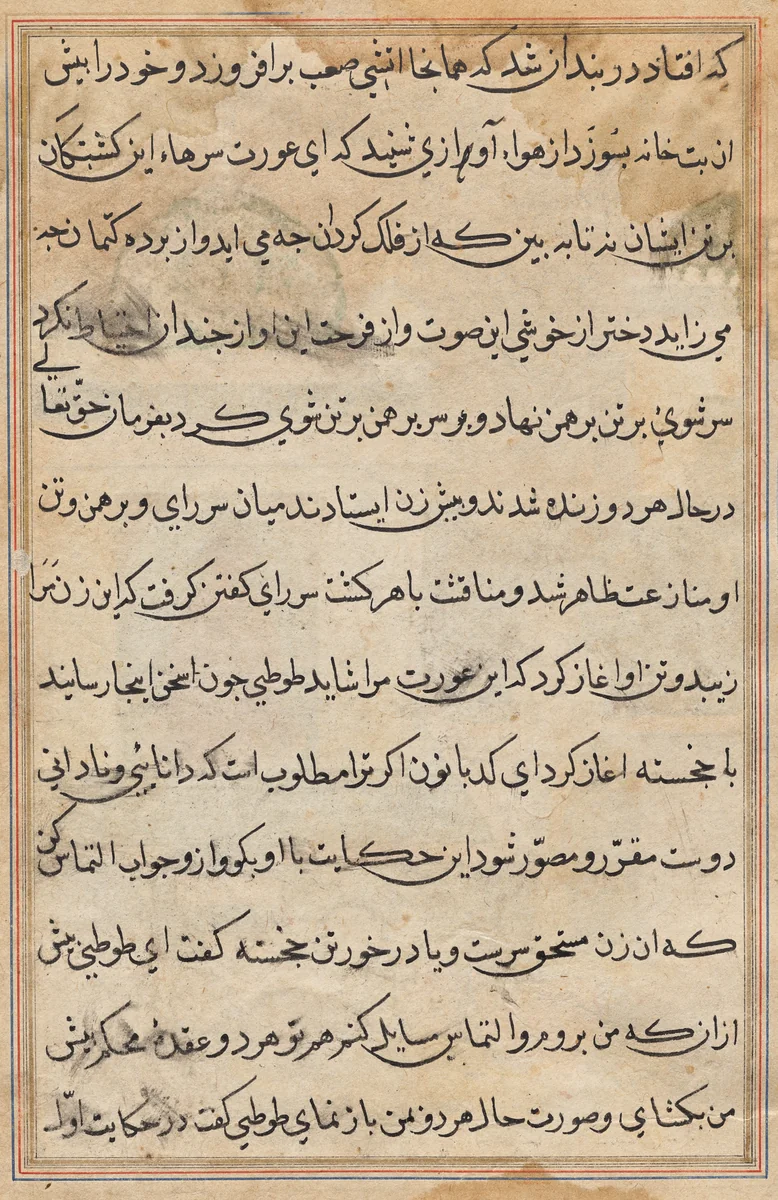 که افتاد در بندان شد که همانجا اتشی صعب بر افروزد و خود را بیش
ان بت خانه بسوزد از هواء آوازی شنید که ای عورت سرهاء این کشتکان
بر تن ایشان نه تا به بین که از فلک کردان جه می اید و از برده کتمان جه
می زاید دختر از خوشی این صوت و از فرحت این اواز جندان احتیاط نکرد
سر شوی بر تن برهمن نهاد و سر برهمن بر تن شوی کرد بفرمان حق تعالی
در حال هر دو زنده شدند و بیش زن ایستادند میان سر رای و برهمن و تن
او منازعت ظاهر شد و مناقشت باهر کشت سر رای کفتن کرفت که این زن مرا
زیبد و تن او اغاز کرد که این عورت مرا شاید طوطی جون سخن اینجا رسانید
با خجسته اغاز کرد ای کدبانون اکر ترا مطلوب است که دانایی و نادانی
دوست مقرّر و مصوّر شود این حکایت با او بکو و از و جواب التماس کن
که ان زن مستحق سرست و یا در خور تن خجسته کفت ای طوطی بیش
از ان که من بروم و التماس مسایل کنم هم تو هر دو عقدهٔ محکم بیش
من بکشای و صورت حال هر دو بمن باز نمای طوطی کفت در حکایت اوّل